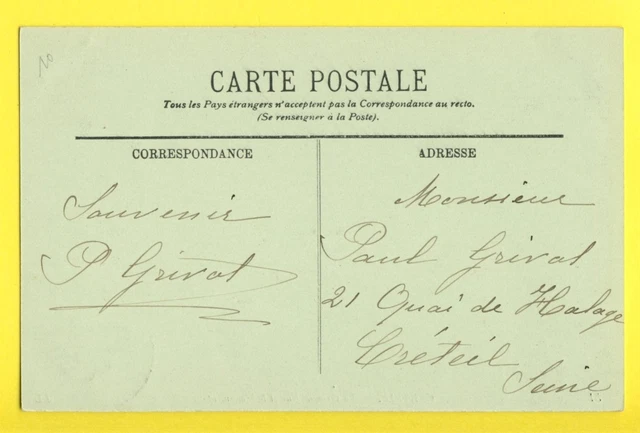 10
CARTE POSTALE
Tous les Pays étrangers n'acceptent pas la Correspondance au recto.
(Se renseigner à la Poste).
CORRESPONDANCE
ADRESSE
Souvenir
P Grivat
Monsieur
Paul Grivat
21 Quai de Halage
Créteil
Seine